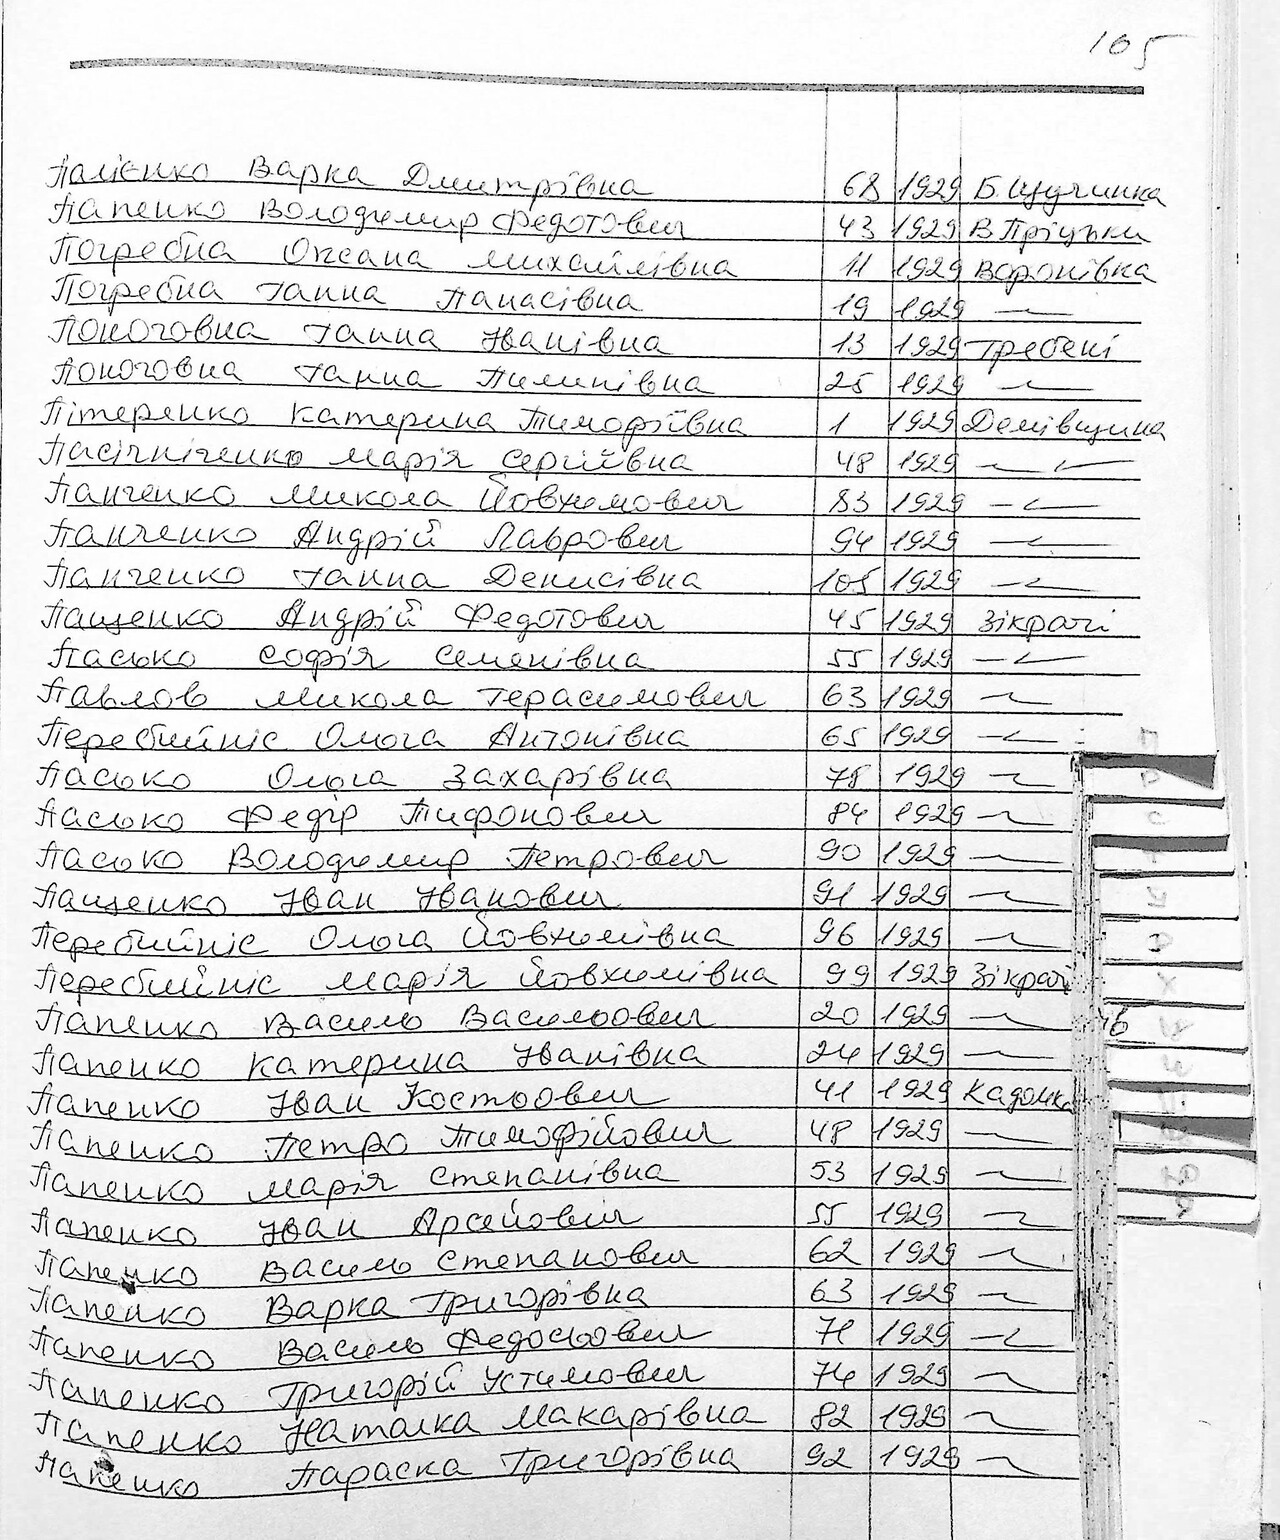 105
Палієнко Варка Дмитрівна 68 1929 Б. Щучинка
Папенко Володимир Федотович 43 1929 В Пріцьки
Погребна Оксана Михайлівна 11 1929 Воронівка
Погребна Ганна Панасівна 19 1929 —
Поноговна Ганна Іванівна 13 1929 Гребені
Поноговна Ганна Пилипівна 25 1929 —
Пітеренко Катерина Тимофіївна 1 1929 Демівщина
Пасічніченко Марія Сергіївна 48 1929 —
Панченко Микола Йовхимович 83 1929 —
Панченко Андрій Лаврович 94 1929 —
Панченко Ганна Денисівна 105 1929 —
Пащенко Андрій Федотович 45 1929 Зікрачі
Пасько Софія Семенівна 55 1929 —
Павлов Микола Герасимович 63 1929 —
Перебийніс Ольга Антонівна 65 1929 —
Пасько Ольга Захарівна 78 1929 —
Пасько Федір Тифонович 84 1929 —
Пасько Володимир Петрович 90 1929 —
Пащенко Іван Іванович 91 1929 —
Перебийніс Ольга Йовхимівна 96 1929 —
Перебийніс Марія Йовхимівна 99 1929 Зікрачі
Папенко Василь Васильович 20 1929 —
Папенко Катерина Іванівна 24 1929 —
Папенко Іван Костьович 41 1929 Кадомка
Папенко Петро Тимофійович 48 1929 —
Папенко Марія Степанівна 53 1929 —
Папенко Іван Арсейович 55 1929 —
Папенко Василь Степанович 62 1929 —
Папенко Варка Григорівна 63 1929 —
Папенко Василь Федосьович 71 1929 —
Папенко Григорій Устимович 74 1929 —
Папенко Наталка Макарівна 82 1929 —
Папенко Параска Григорівна 92 1929 —